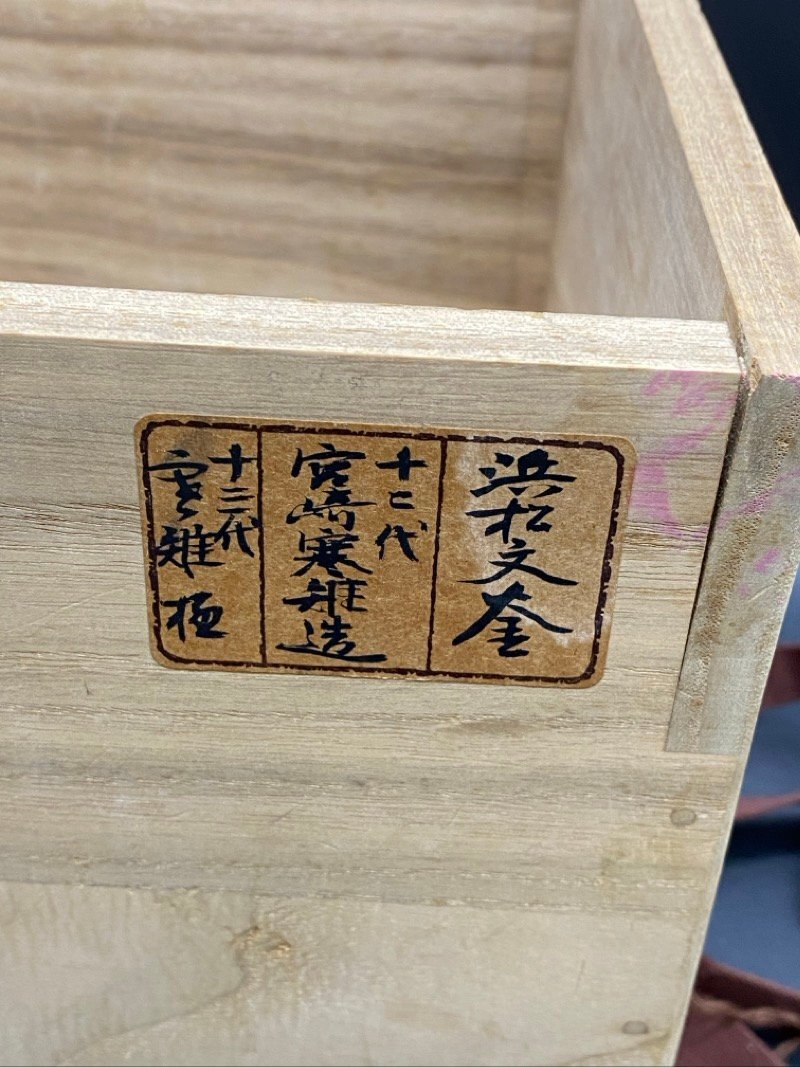 浜松文釜
十二代
宮崎寒雉造
十三代
寒雉極